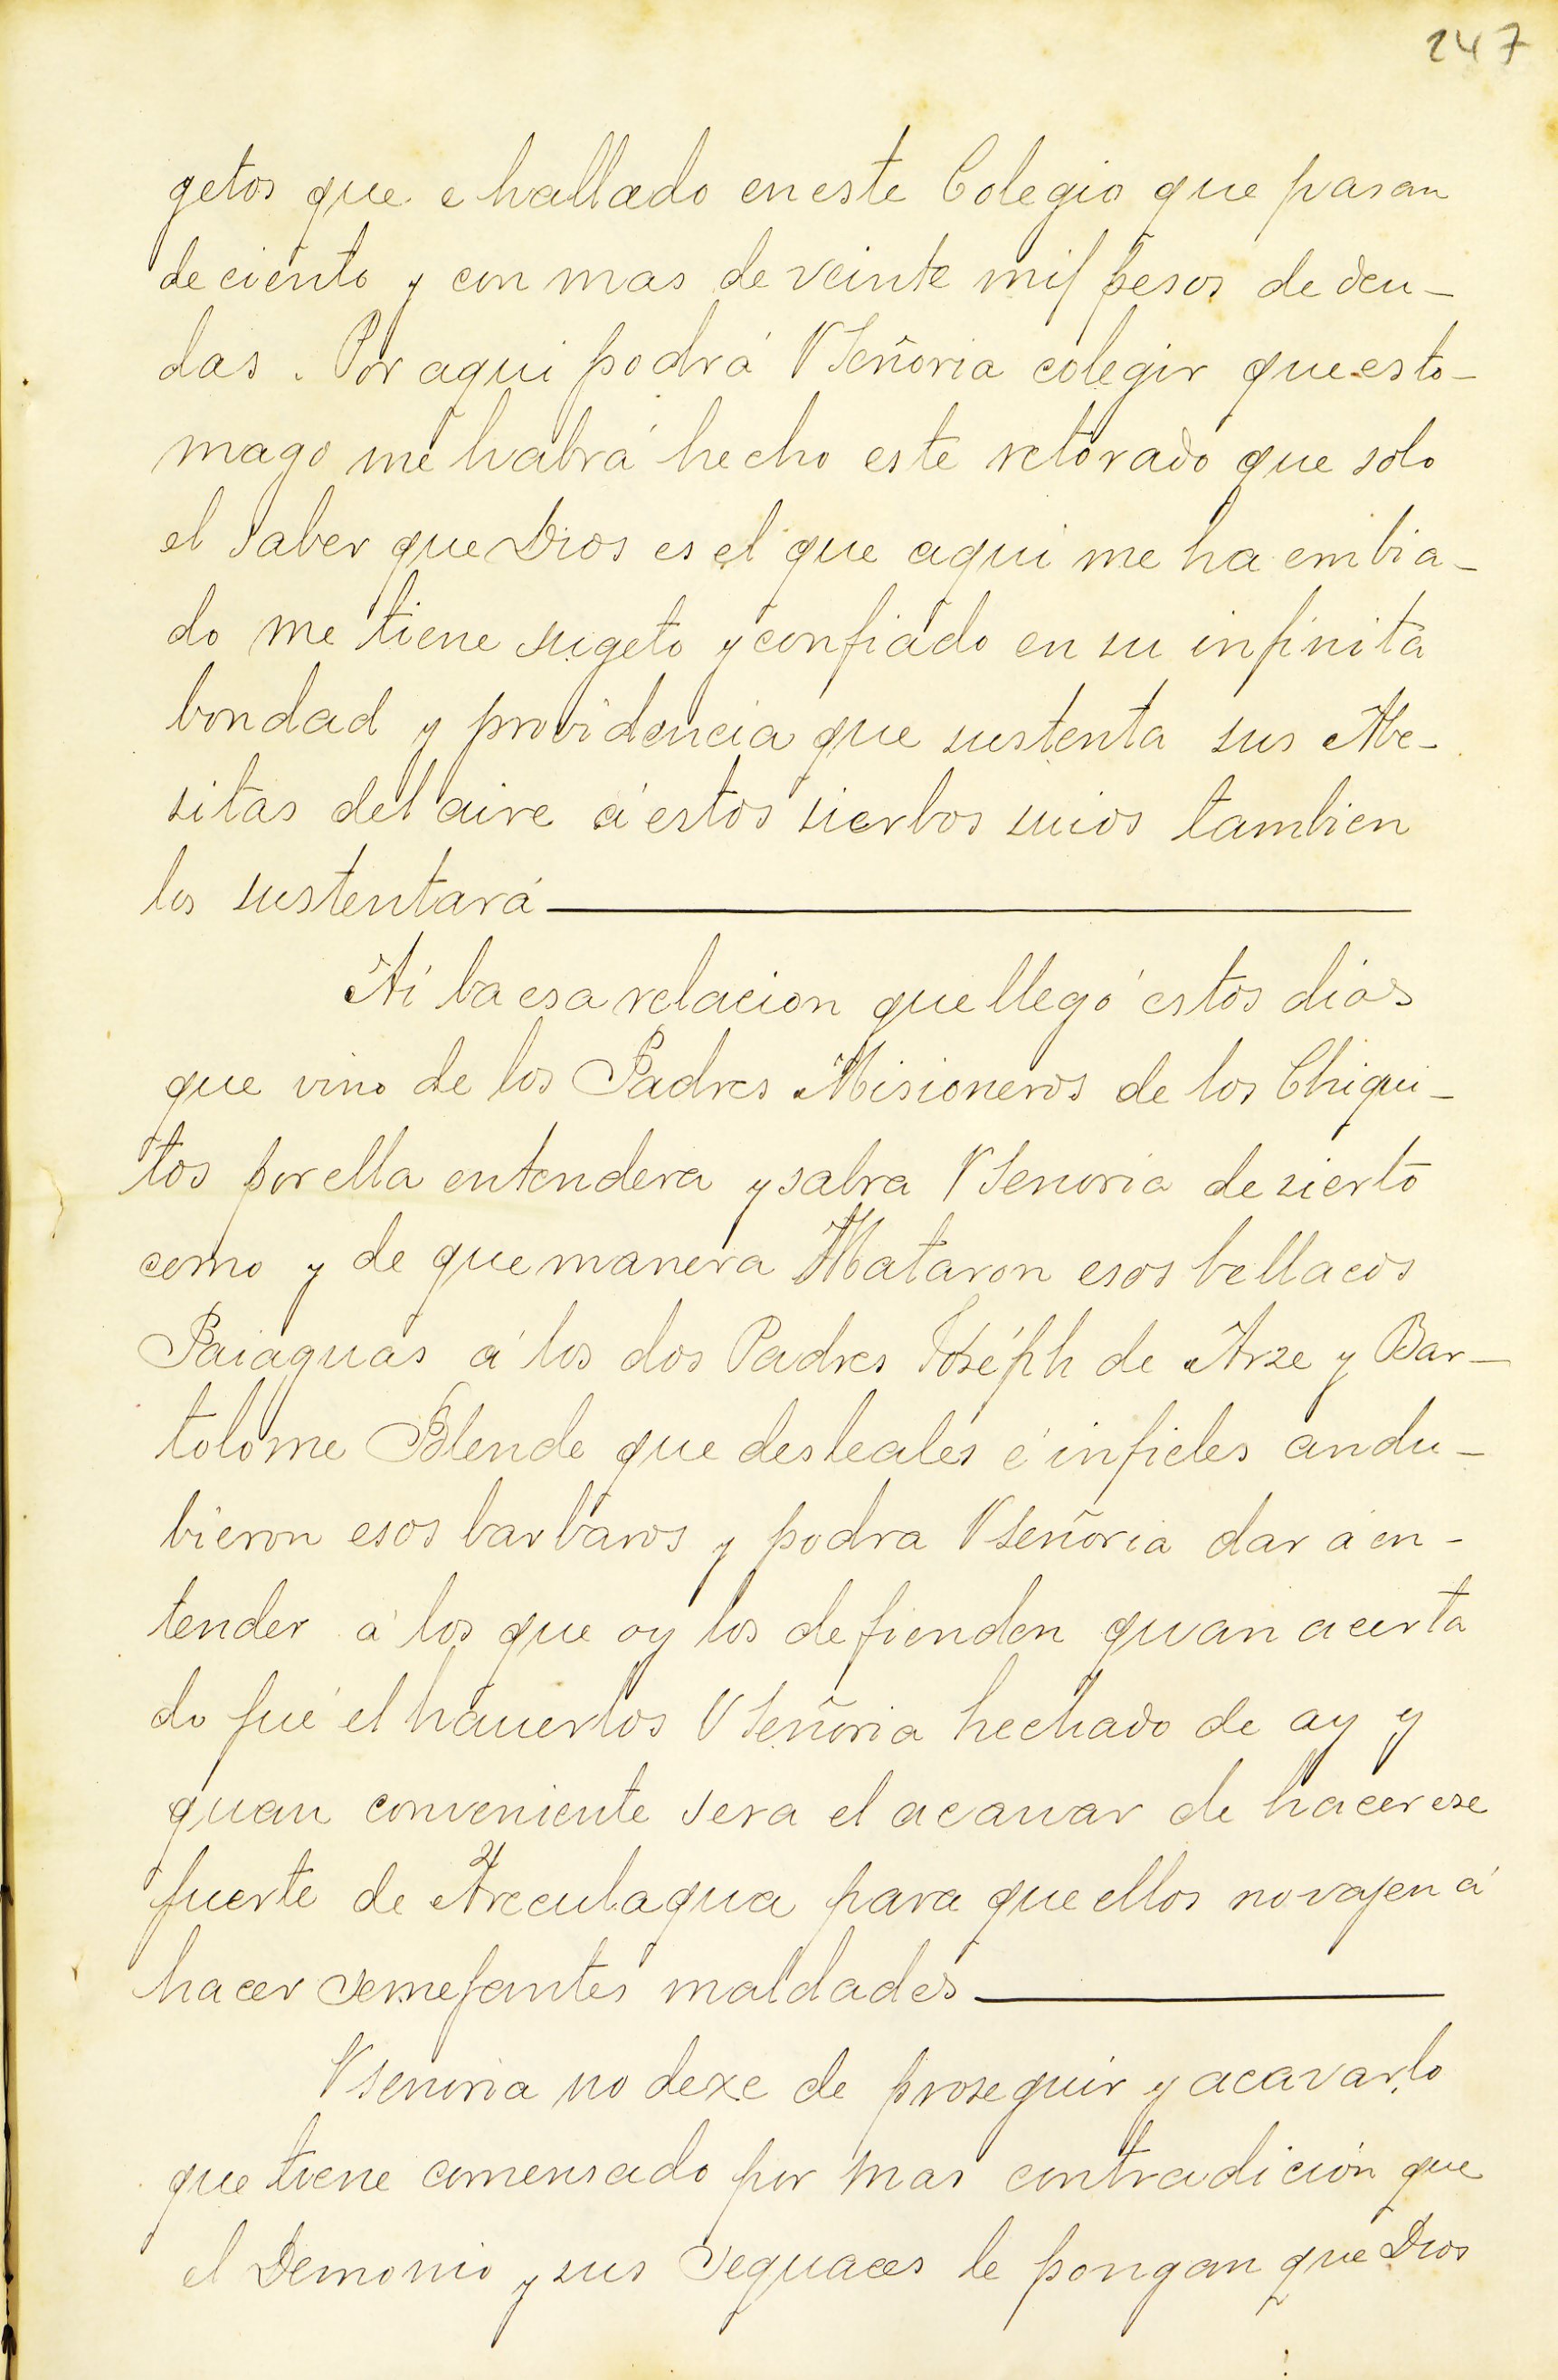 247
getos que e hallado en este Colegio que pasan
de ciento y con mas de veinte mil pesos de deu-
das. Por aqui podrá VSeñoria colegir que esto-
mago me habrá hecho este retorado que solo
el saber que Dios es el que aqui me ha embia-
do me tiene sugeto y confiado en su infinita
bondad y providencia que sustenta sus Abe-
sitas del aire á estos sierbos suios tambien
los sustentará
Ai ba esa relacion que llegó estos dias
que vino de los Padres Misioneros de los Chiqui-
tos por ella entendera y sabra VSenoria de sierto
como y de que manera Mataron esos bellacos
Paiaguas á los dos Padres Joséph de Arze y Bar-
tolome Blende que desleales é infieles andu-
bieron esos barbaros y podra VSeñoria dar á en-
tender á los que oy los defienden quan acerta
do fué el hauerlos VSeñoria hechado de ay y
quan conveniente sera el acauar de hacer ese
fuerte de Arecutaqua para que ellos no vajen á
hacer semejantes maldades
VSenoria no dexe de proseguir y acavar lo
que tiene comensado por mas contradición que
el Demonio y sus sequaces le pongan que Dios